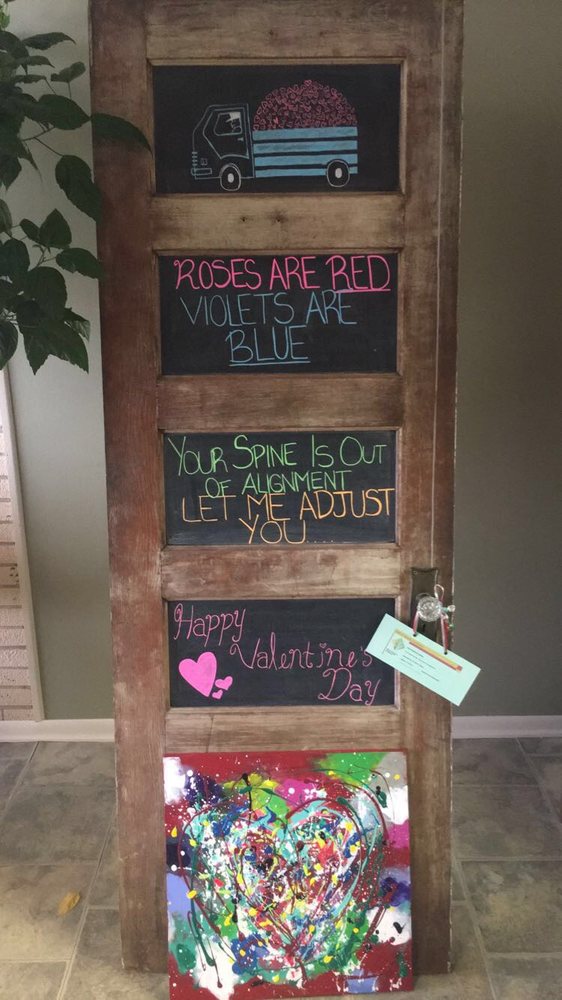 ROSES ARE RED
VIOLETS ARE
BLUE
YOUR SPINE IS OUT
OF ALIGNMENT
LET ME ADJUST
YOU....
Happy
Valentine's
Day